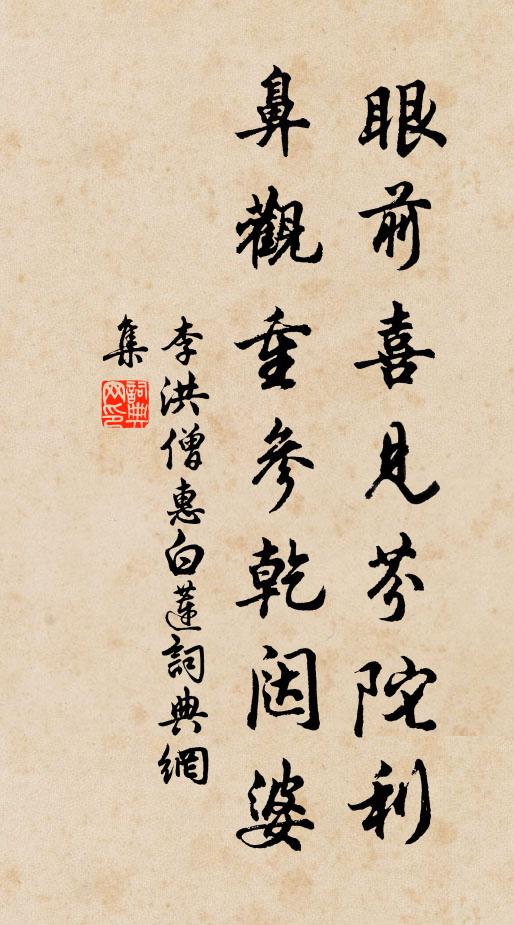 眼前喜見芬陀利
鼻觀重參乾闥婆
李洪僧惠白蓮詞典網
集
詞典
網印